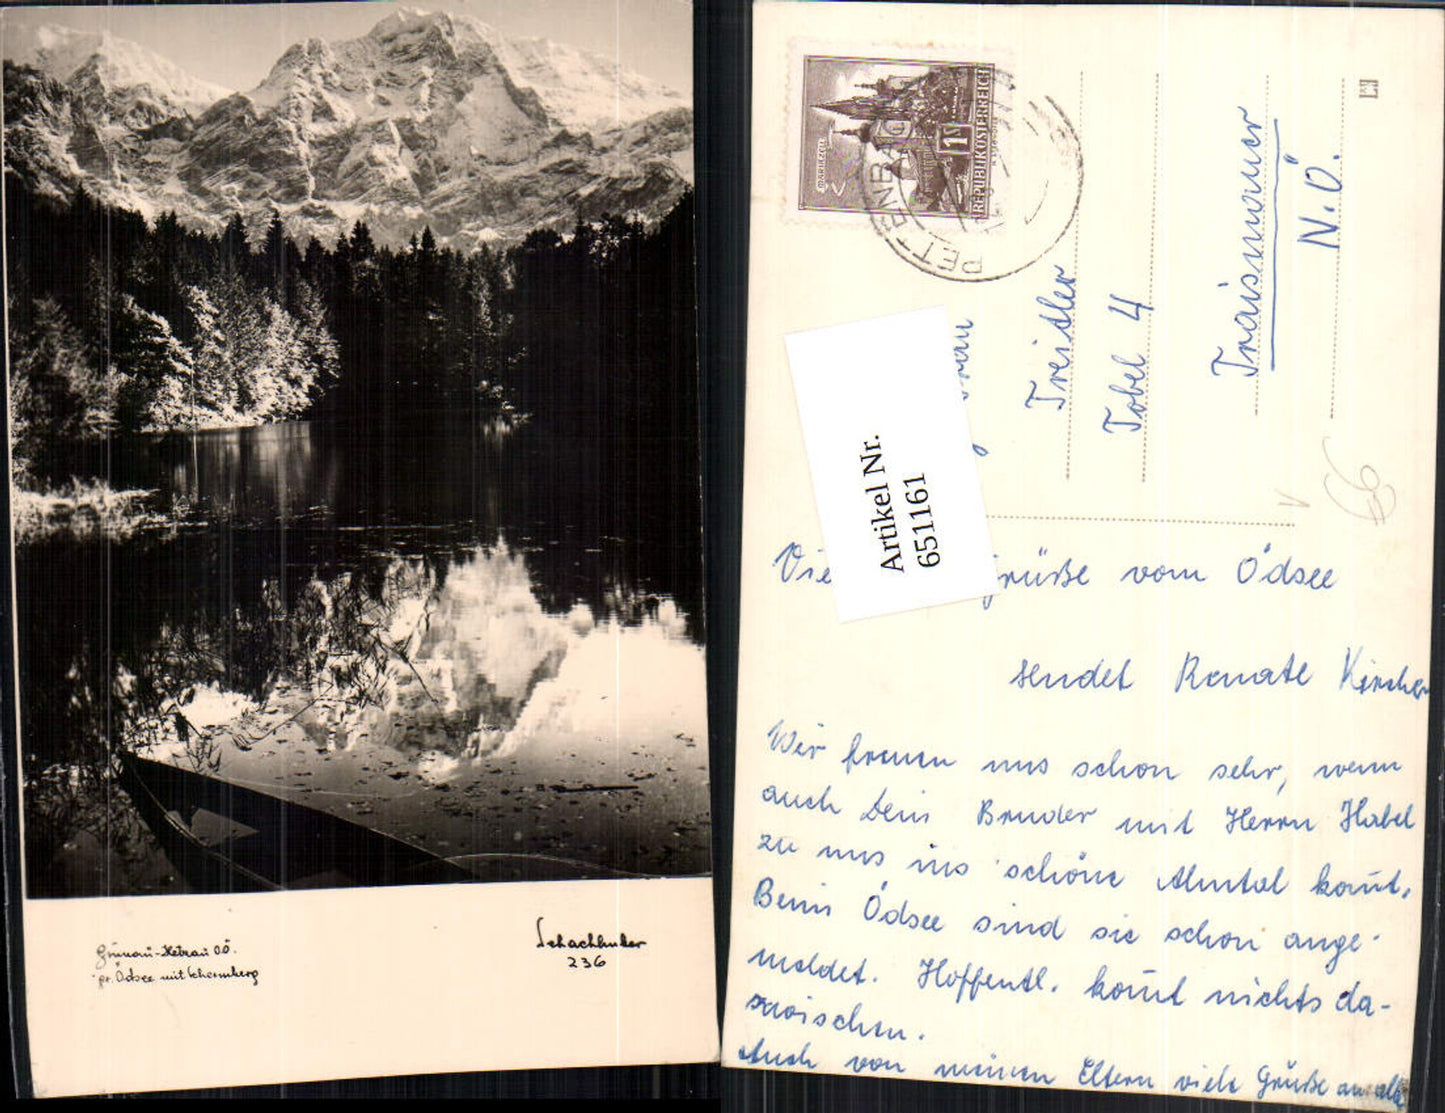 Grünau-Hetzau O.Ö.
gr. Ödsee mit Schermberg
Schachhuber
236
MARIAZELL
1
REPUBLIK ÖSTERREICH
PETTENBA
Treidler
Tobel 4
Traismauer
N.Ö.
66
Artikel Nr.
651161
Vie grüße vom Ödsee
sendet Renate Kircher
Wir freuen uns schon sehr, wenn
auch Dein Bruder mit Herrn Habel
zu uns ins schöne Almtal kom̄t.
Beim Ödsee sind sie schon ange-
meldet. Hoffentl. kom̄t nichts da-
zwischen.
Auch von meinen Eltern viele Grüße an alle